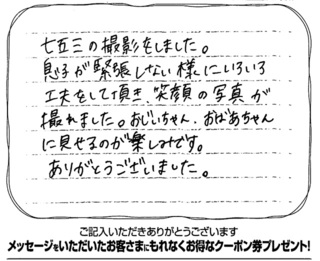 七五三の撮影をしました。
息子が緊張しない様にいろいろ
工夫をして頂き、笑顔の写真が
撮れました。おじいちゃん、おばあちゃん
に見せるのが楽しみです。
ありがとうございました。
ご記入いただきありがとうございます
メッセージをいただいたお客さまにもれなくお得なクーポン券プレゼント!